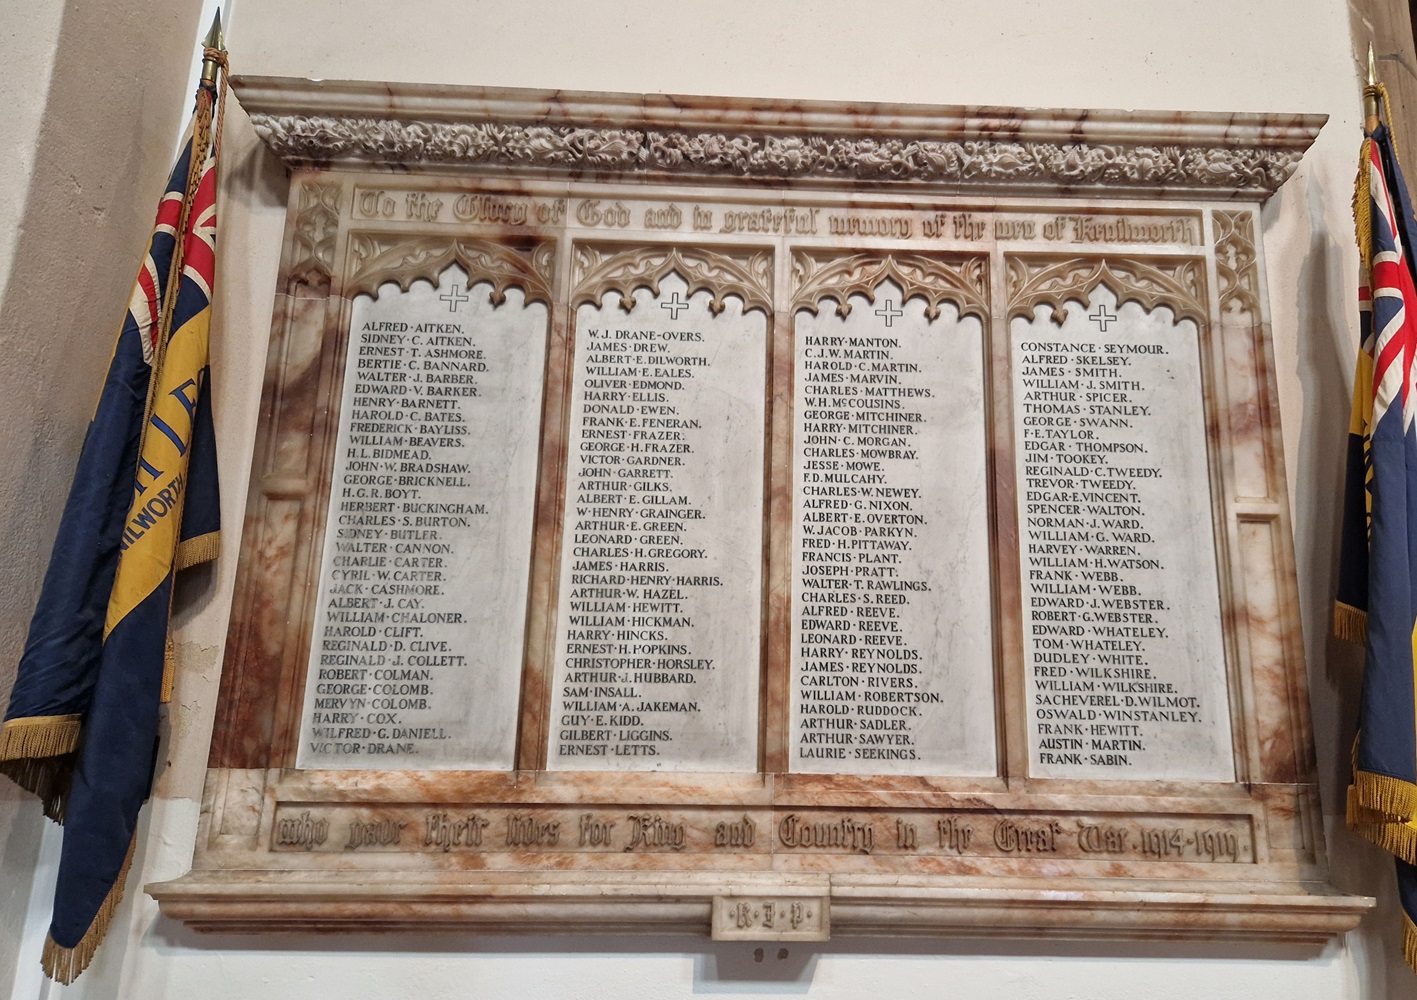 To the Glory of God and in grateful memory of the men of Kenilworth
ALFRED·AITKEN.
SIDNEY·C.AITKEN.
ERNEST·T.ASHMORE.
BERTIE·C.BANNARD.
WALTER·J.BARBER.
EDWARD·V.BARKER.
HENRY·BARNETT.
HAROLD·C.BATES.
FREDERICK·BAYLISS.
WILLIAM·BEAVERS.
H.L.BIDMEAD.
JOHN·W.BRADSHAW.
GEORGE·BRICKNELL.
H.G.R.BOYT.
HERBERT·BUCKINGHAM.
CHARLES·S.BURTON.
SIDNEY·BUTLER.
WALTER·CANNON.
CHARLIE·CARTER.
CYRIL·W.CARTER.
JACK·CASHMORE.
ALBERT·J.CAY.
WILLIAM·CHALONER.
HAROLD·CLIFT.
REGINALD·D.CLIVE.
REGINALD·J.COLLETT.
ROBERT·COLMAN.
GEORGE·COLOMB.
MERVYN·COLOMB.
HARRY·COX.
WILFRED·G.DANIELL.
VICTOR·DRANE.
W.J.DRANE-OVERS.
JAMES·DREW.
ALBERT·E.DILWORTH.
WILLIAM·E.EALES.
OLIVER·EDMOND.
HARRY·ELLIS.
DONALD·EWEN.
FRANK·E.FENERAN.
ERNEST·FRAZER.
GEORGE·H.FRAZER.
VICTOR·GARDNER.
JOHN·GARRETT.
ARTHUR·GILKS.
ALBERT·E.GILLAM.
W·HENRY·GRAINGER.
ARTHUR·E.GREEN.
LEONARD·GREEN.
CHARLES·H.GREGORY.
JAMES·HARRIS.
RICHARD·HENRY·HARRIS.
ARTHUR·W.HAZEL.
WILLIAM·HEWITT.
WILLIAM·HICKMAN.
HARRY·HINCKS.
ERNEST·H.HOPKINS.
CHRISTOPHER·HORSLEY.
ARTHUR·J.HUBBARD.
SAM·INSALL.
WILLIAM·A.JAKEMAN.
GUY·E.KIDD.
GILBERT·LIGGINS.
ERNEST·LETTS.
HARRY·MANTON.
C.J.W.MARTIN.
HAROLD·MARTIN.
JAMES·MARVIN.
CHARLES·MATTHEWS.
W.H.McCOUSINS.
GEORGE·MITCHINER.
HARRY·MITCHINER.
JOHN·C.MORGAN.
CHARLES·MOWBRAY.
JESSE·MOWE.
F.D.MULCAHY.
CHARLES·W.NEWEY.
ALFRED·G.NIXON.
ALBERT·E.OVERTON.
W.JACOB·PARKYN.
FRED·H.PITTAWAY.
FRANCIS·PLANT.
JOSEPH·PRATT.
WALTER·T.RAWLINGS.
CHARLES·S.REED.
ALFRED·REEVE.
EDWARD·REEVE.
LEONARD·REEVE.
HARRY·REYNOLDS.
JAMES·REYNOLDS.
CARLTON·RIVERS.
WILLIAM·ROBERTSON.
HAROLD·RUDDOCK.
ARTHUR·SADLER.
ARTHUR·SAWYER.
LAURIE·SEEKINGS.
CONSTANCE·SEYMOUR.
ALFRED·SKELSEY.
JAMES·SMITH.
WILLIAM·J.SMITH.
ARTHUR·SPICER.
THOMAS·STANLEY.
GEORGE·SWANN.
F·E.TAYLOR.
EDGAR·THOMPSON.
JIM·TOOKEY.
REGINALD·C.TWEEDY.
TREVOR·TWEEDY.
EDGAR·E.VINCENT.
SPENCER·WALTON.
NORMAN·J.WARD.
WILLIAM·G.WARD.
HARVEY·WARREN.
WILLIAM·H.WATSON.
FRANK·WEBB.
WILLIAM·WEBB.
EDWARD·J.WEBSTER.
ROBERT·G.WEBSTER.
EDWARD·WHATELEY.
TOM·WHATELEY.
DUDLEY·WHITE.
FRED·WILKSHIRE.
WILLIAM·WILKSHIRE.
SACHEVEREL·D.WILMOT.
OSWALD·WINSTANLEY.
FRANK·HEWITT.
AUSTIN·MARTIN.
FRANK·SABIN.
who gave their lives for King and Country in the Great War·1914-1919·
·R·I·P·